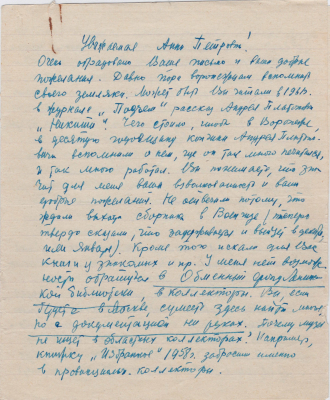 Уважаемая Анна Петровна!
Очень обрадовало Ваше письмо и ваши добрые
пожелания. Давно пора воронежцам вспомнить
своего земляка. Может быть Вы читали в 1961 г.
в журнале "Подъем" рассказ Андрея Платонова
"Никита"? Чего стоило, чтоб в Воронеже
в десятую годовщину кончины Андрея Платоно-
вича вспомнили о нем, где он так много
и так много работал. Вы понимаете, что зна-
чит для меня ваша взволнованность и ваши
добрые пожелания. Не ответила потому, что
ждала выхода сборника в (теперь
твердо сказали, что задержится и выйдет в декаб-
ре или январе). Кроме того искала для Вас
книги у знакомых и пр. У меня нет возмож-
ности обратиться в Обменный фонд Ленинс-
кой библиотеки, в коллекторы. Вы, если
будете в Москве, сумеете здесь найти
но с документацией на руках. Почему музей
не ищет в областных коллекторах? Например,
книжку "Избранное" 1958 г. забросили именно
в провинциальн. коллекторы.